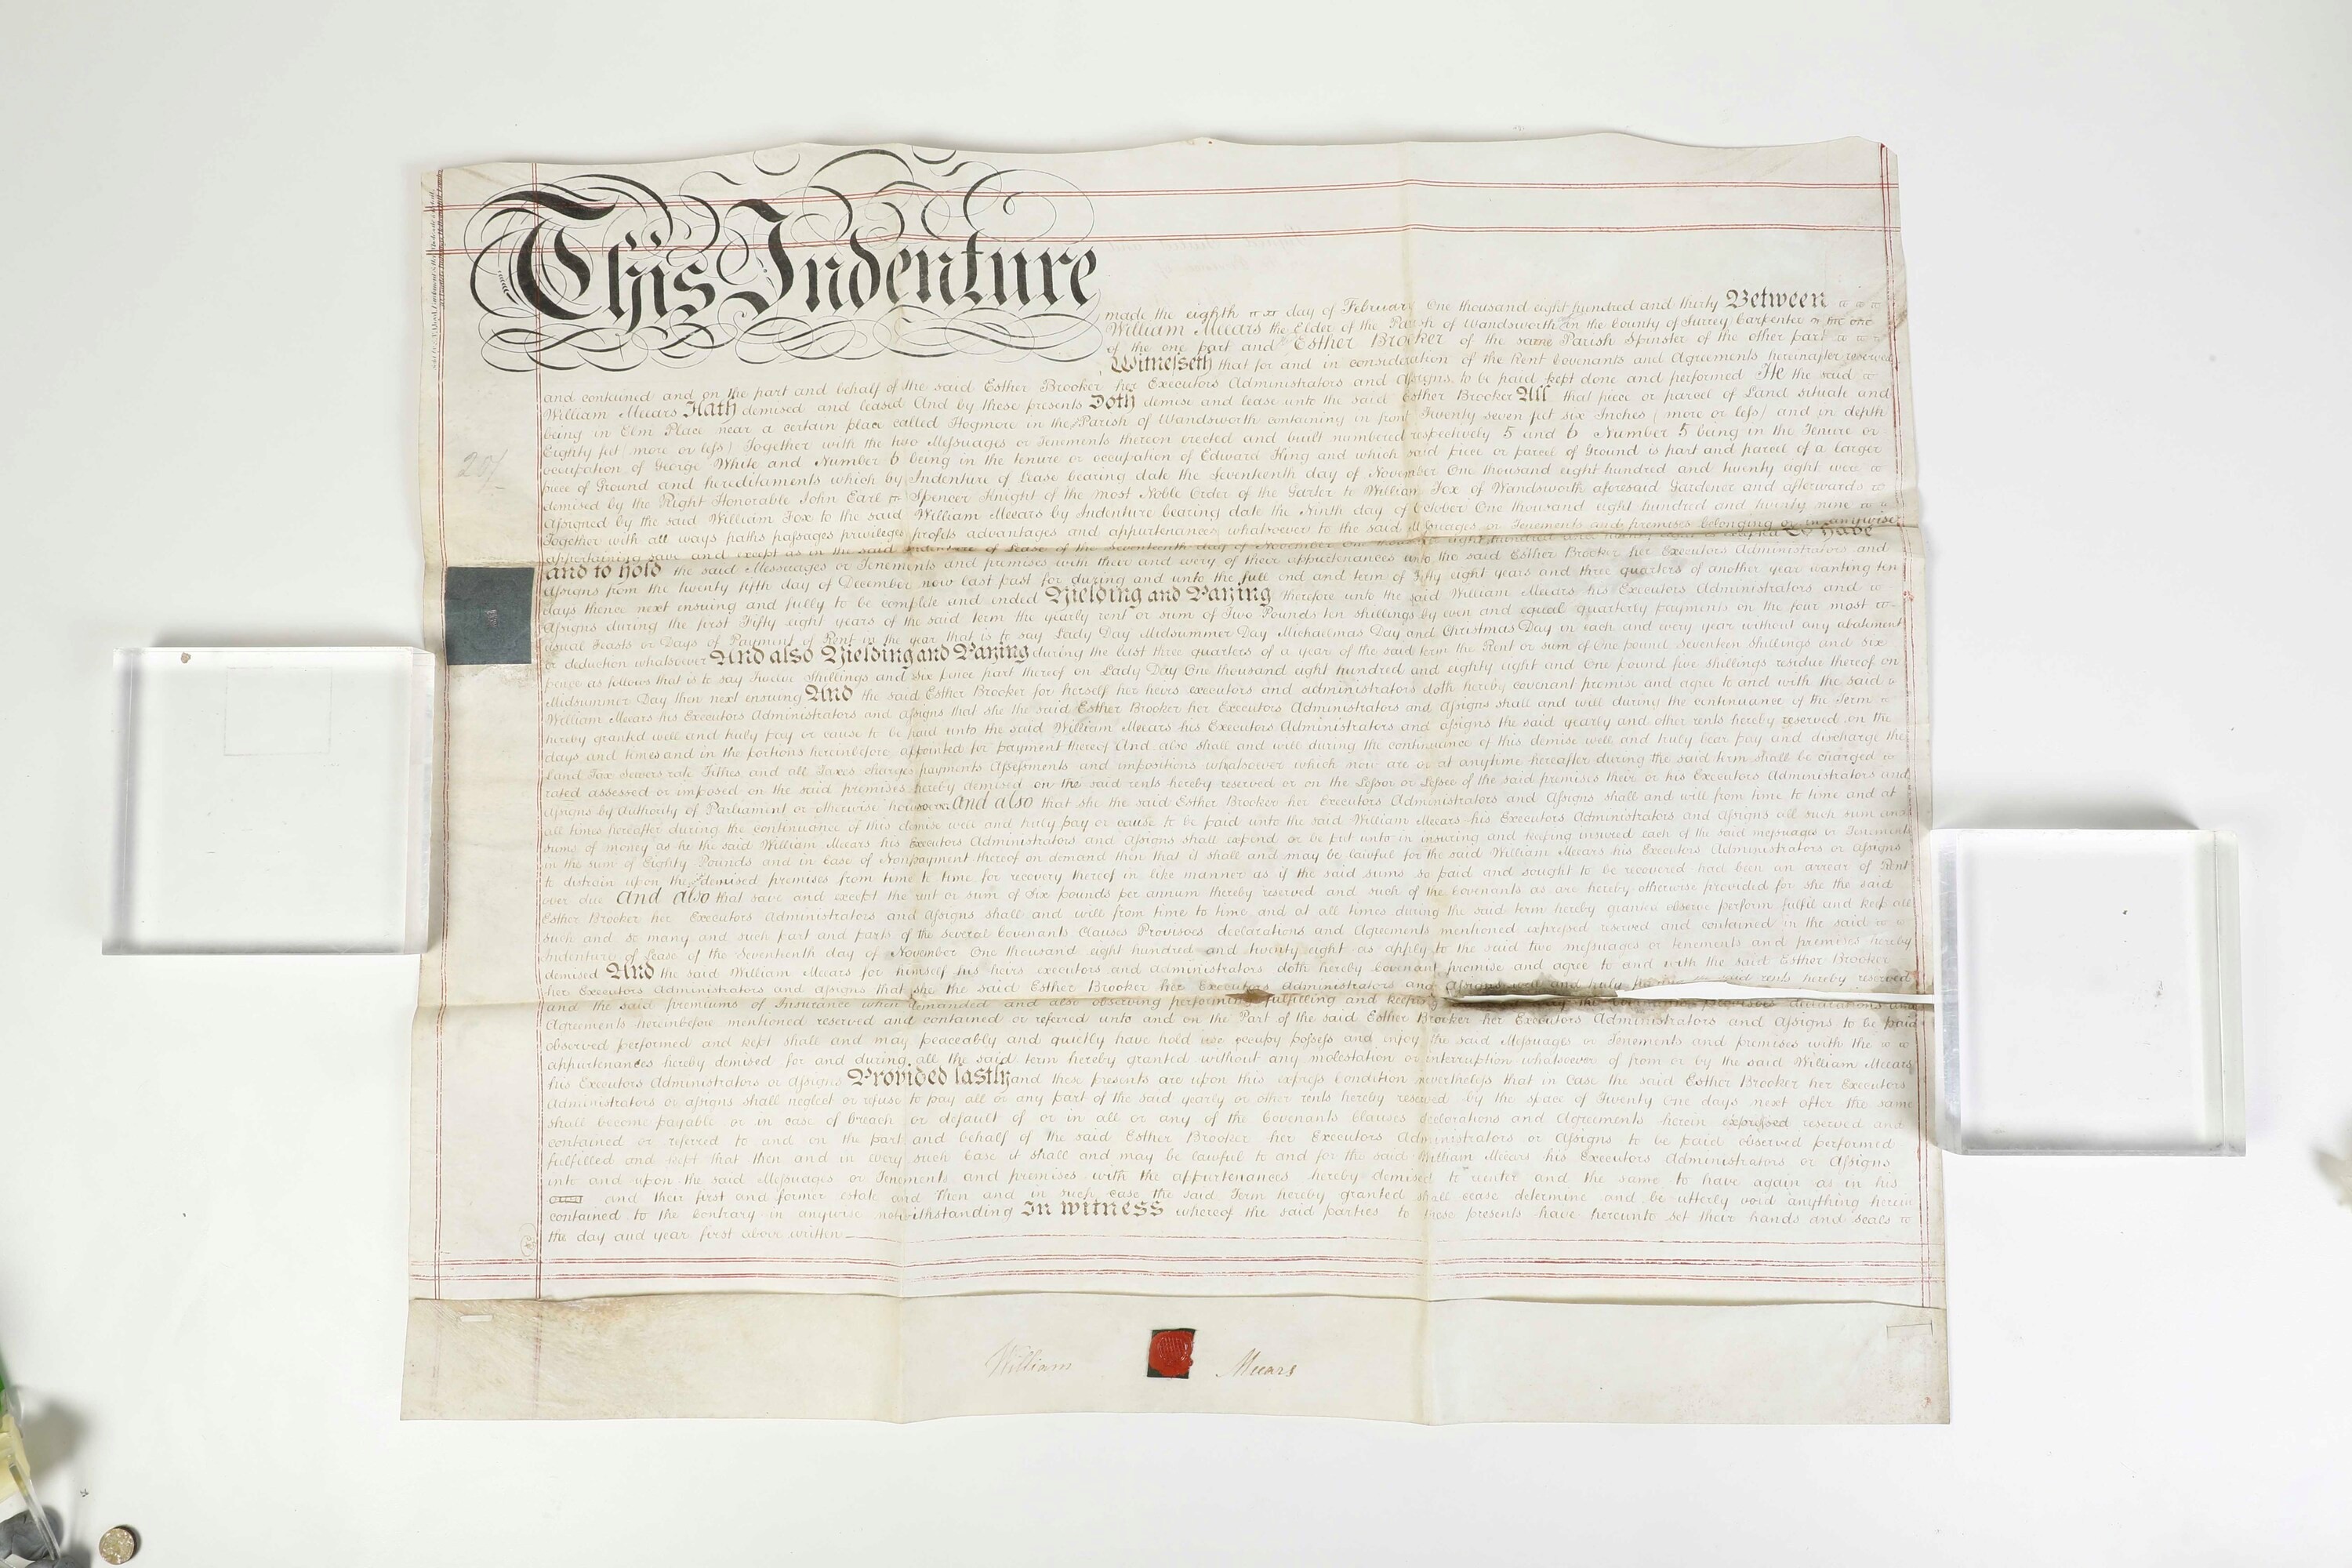 This Indenture
made the eighth day of February One thousand eight hundred and thirty Between
William Meears the Elder of the Parish of Wandsworth in the County of Surrey Carpenter
of the one part and Esther Brooker of the same Parish Spinster of the other part
Witnesseth that for and in consideration of the Rent Covenants and Agreements hereinafter reserved
and contained and on the part and behalf of the said Esther Brooker her Executors Administrators and Assigns to be paid kept done and performed He the said
William Meears Hath demised and leased And by these presents Doth demise and lease unto the said Esther Brooker All that piece or parcel of Land situate and
being in Elm Place near a certain place called Hogmore in the Parish of Wandsworth containing in front Twenty seven feet six Inches (more or less) and in depth
Eighty feet (more or less) Together with the two Messuages or Tenements thereon erected and built numbered respectively 5 and 6 Number 5 being in the Tenure or
occupation of George White and Number 6 being in the tenure or occupation of Edward King and which said piece or parcel of Ground is part and parcel of a larger
piece of Ground and hereditaments which by Indenture of Lease bearing date the Seventeenth day of November One thousand eight hundred and twenty eight were
demised by the Right Honorable John Earl Spencer Knight of the most Noble Order of the Garter to William Fox of Wandsworth aforesaid Gardener and afterwards
Assigned by the said William Fox to the said William Meears by Indenture bearing date the Ninth day of October One thousand eight hundred and twenty nine
Together with all ways paths passages privileges profits advantages and appurtenances whatsoever to the said Messuages or Tenements and premises belonging or in anywise
appertaining save and except as in the said Indenture of Lease of the Seventeenth day of November One thousand eight hundred and twenty eight is excepted To have
and to hold the said Messuages or Tenements and premises with their and every of their appurtenances unto the said Esther Brooker her Executors Administrators and
Assigns from the twenty fifth day of December now last past for during and unto the full end and term of Fifty eight years and three quarters of another year wanting ten
days thence next ensuing and fully to be complete and ended Yielding and Paying therefore unto the said William Meears his Executors Administrators and
Assigns during the first Fifty eight years of the said term the yearly rent or sum of Two Pounds ten shillings by even and equal quarterly payments on the four most
usual Feasts or Days of Payment of Rent in the year that is to say Lady Day Midsummer Day Michaelmas Day and Christmas Day in each and every year without any abatement
or deduction whatsoever And also Yielding and Paying during the last three quarters of a year of the said term the Rent or sum of One pound Seventeen Shillings and six
pence as follows that is to say Twelve Shillings and Six pence part thereof on Lady Day One thousand eight hundred and eighty eight and One pound five shillings residue thereof on
Midsummer Day then next ensuing And the said Esther Brooker for herself her heirs executors and administrators doth hereby covenant promise and agree to and with the said
William Meears his Executors Administrators and Assigns that she the said Esther Brooker her Executors Administrators and Assigns shall and will during the continuance of the Term
hereby granted well and truly pay or cause to be paid unto the said William Meears his Executors Administrators and assigns the said yearly and other rents hereby reserved on the
days and times and in the portions hereinbefore appointed for payment thereof And also shall and will during the continuance of this demise well and truly bear pay and discharge the
Land Tax Sewers rate Tithes and all Taxes charges payments Assessments and impositions whatsoever which now are or at anytime hereafter during the said term shall be charged
rated assessed or imposed on the said premises hereby demised on the said rents hereby reserved or on the Lessor or Lessee of the said premises their or his Executors Administrators and
Assigns by Authority of Parliament or otherwise howsoever And also that she the said Esther Brooker her Executors Administrators and Assigns shall and will from time to time and at
all times hereafter during the continuance of this demise well and truly pay or cause to be paid unto the said William Meears his Executors Administrators and Assigns all such sum and
sums of money as he the said William Meears his Executors Administrators and Assigns shall expend or be put unto in insuring and keeping insured each of the said messuages or Tenements
in the sum of Eighty Pounds and in Case of Nonpayment thereof on demand then that it shall and may be lawful for the said William Meears his Executors Administrators or Assigns
to distrain upon the demised premises from time to time for recovery thereof in like manner as if the said sums so paid and sought to be recovered had been an arrear of Rent
over due And also that save and except the rent or sum of Six pounds per annum thereby reserved and such of the Covenants as are hereby otherwise provided for she the said
Esther Brooker her Executors Administrators and Assigns shall and will from time to time and at all times during the said term hereby granted observe perform fulfil and keep all
such and so many and such part and parts of the several Covenants Clauses Provisoes declarations and Agreements mentioned expressed reserved and contained in the said
Indenture of Lease of the Seventeenth day of November One thousand eight hundred and twenty eight as apply to the said two messuages or tenements and premises hereby
demised And the said William Meears for himself his heirs executors and administrators doth hereby Covenant promise and agree to and with the said Esther Brooker
her Executors Administrators and assigns that she the said Esther Brooker her Executors Administrators and Assigns well and truly rents hereby reserved
and the said premiums of Insurance when demanded and also observing performing fulfilling and keeping the provisoes declarations and
Agreements hereinbefore mentioned reserved and contained or referred unto and on the Part of the said Esther Brooker her Executors Administrators and Assigns to be paid
observed performed and kept shall and may peaceably and quietly have hold use occupy possess and enjoy the said Messuages or Tenements and premises with the
appurtenances hereby demised for and during all the said term hereby granted without any molestation or interruption whatsoever of from or by the said William Meears
his Executors Administrators or Assigns Provided lastly and these presents are upon this express Condition nevertheless that in Case the said Esther Brooker her Executors
Administrators or assigns shall neglect or refuse to pay all or any part of the said yearly or other rents hereby reserved by the space of Twenty One days next after the same
shall become payable or in case of breach or default of or in all or any of the Covenants Clauses declarations and Agreements herein expressed reserved and
contained or referred to and on the part and behalf of the said Esther Brooker her Executors Administrators or Assigns to be paid observed performed
fulfilled and kept that then and in every such Case it shall and may be lawful to and for the said William Meears his Executors Administrators or Assigns
into and upon the said Messuages or Tenements and premises with the appurtenances hereby demised to reenter and the same to have again as in his
and their first and former estate and Then and in such case the said Term hereby granted shall cease determine and be utterly void anything herein
contained to the Contrary in anywise notwithstanding In witness whereof the said parties to these presents have hereunto set their hands and seals
the day and year first above written
William Meears